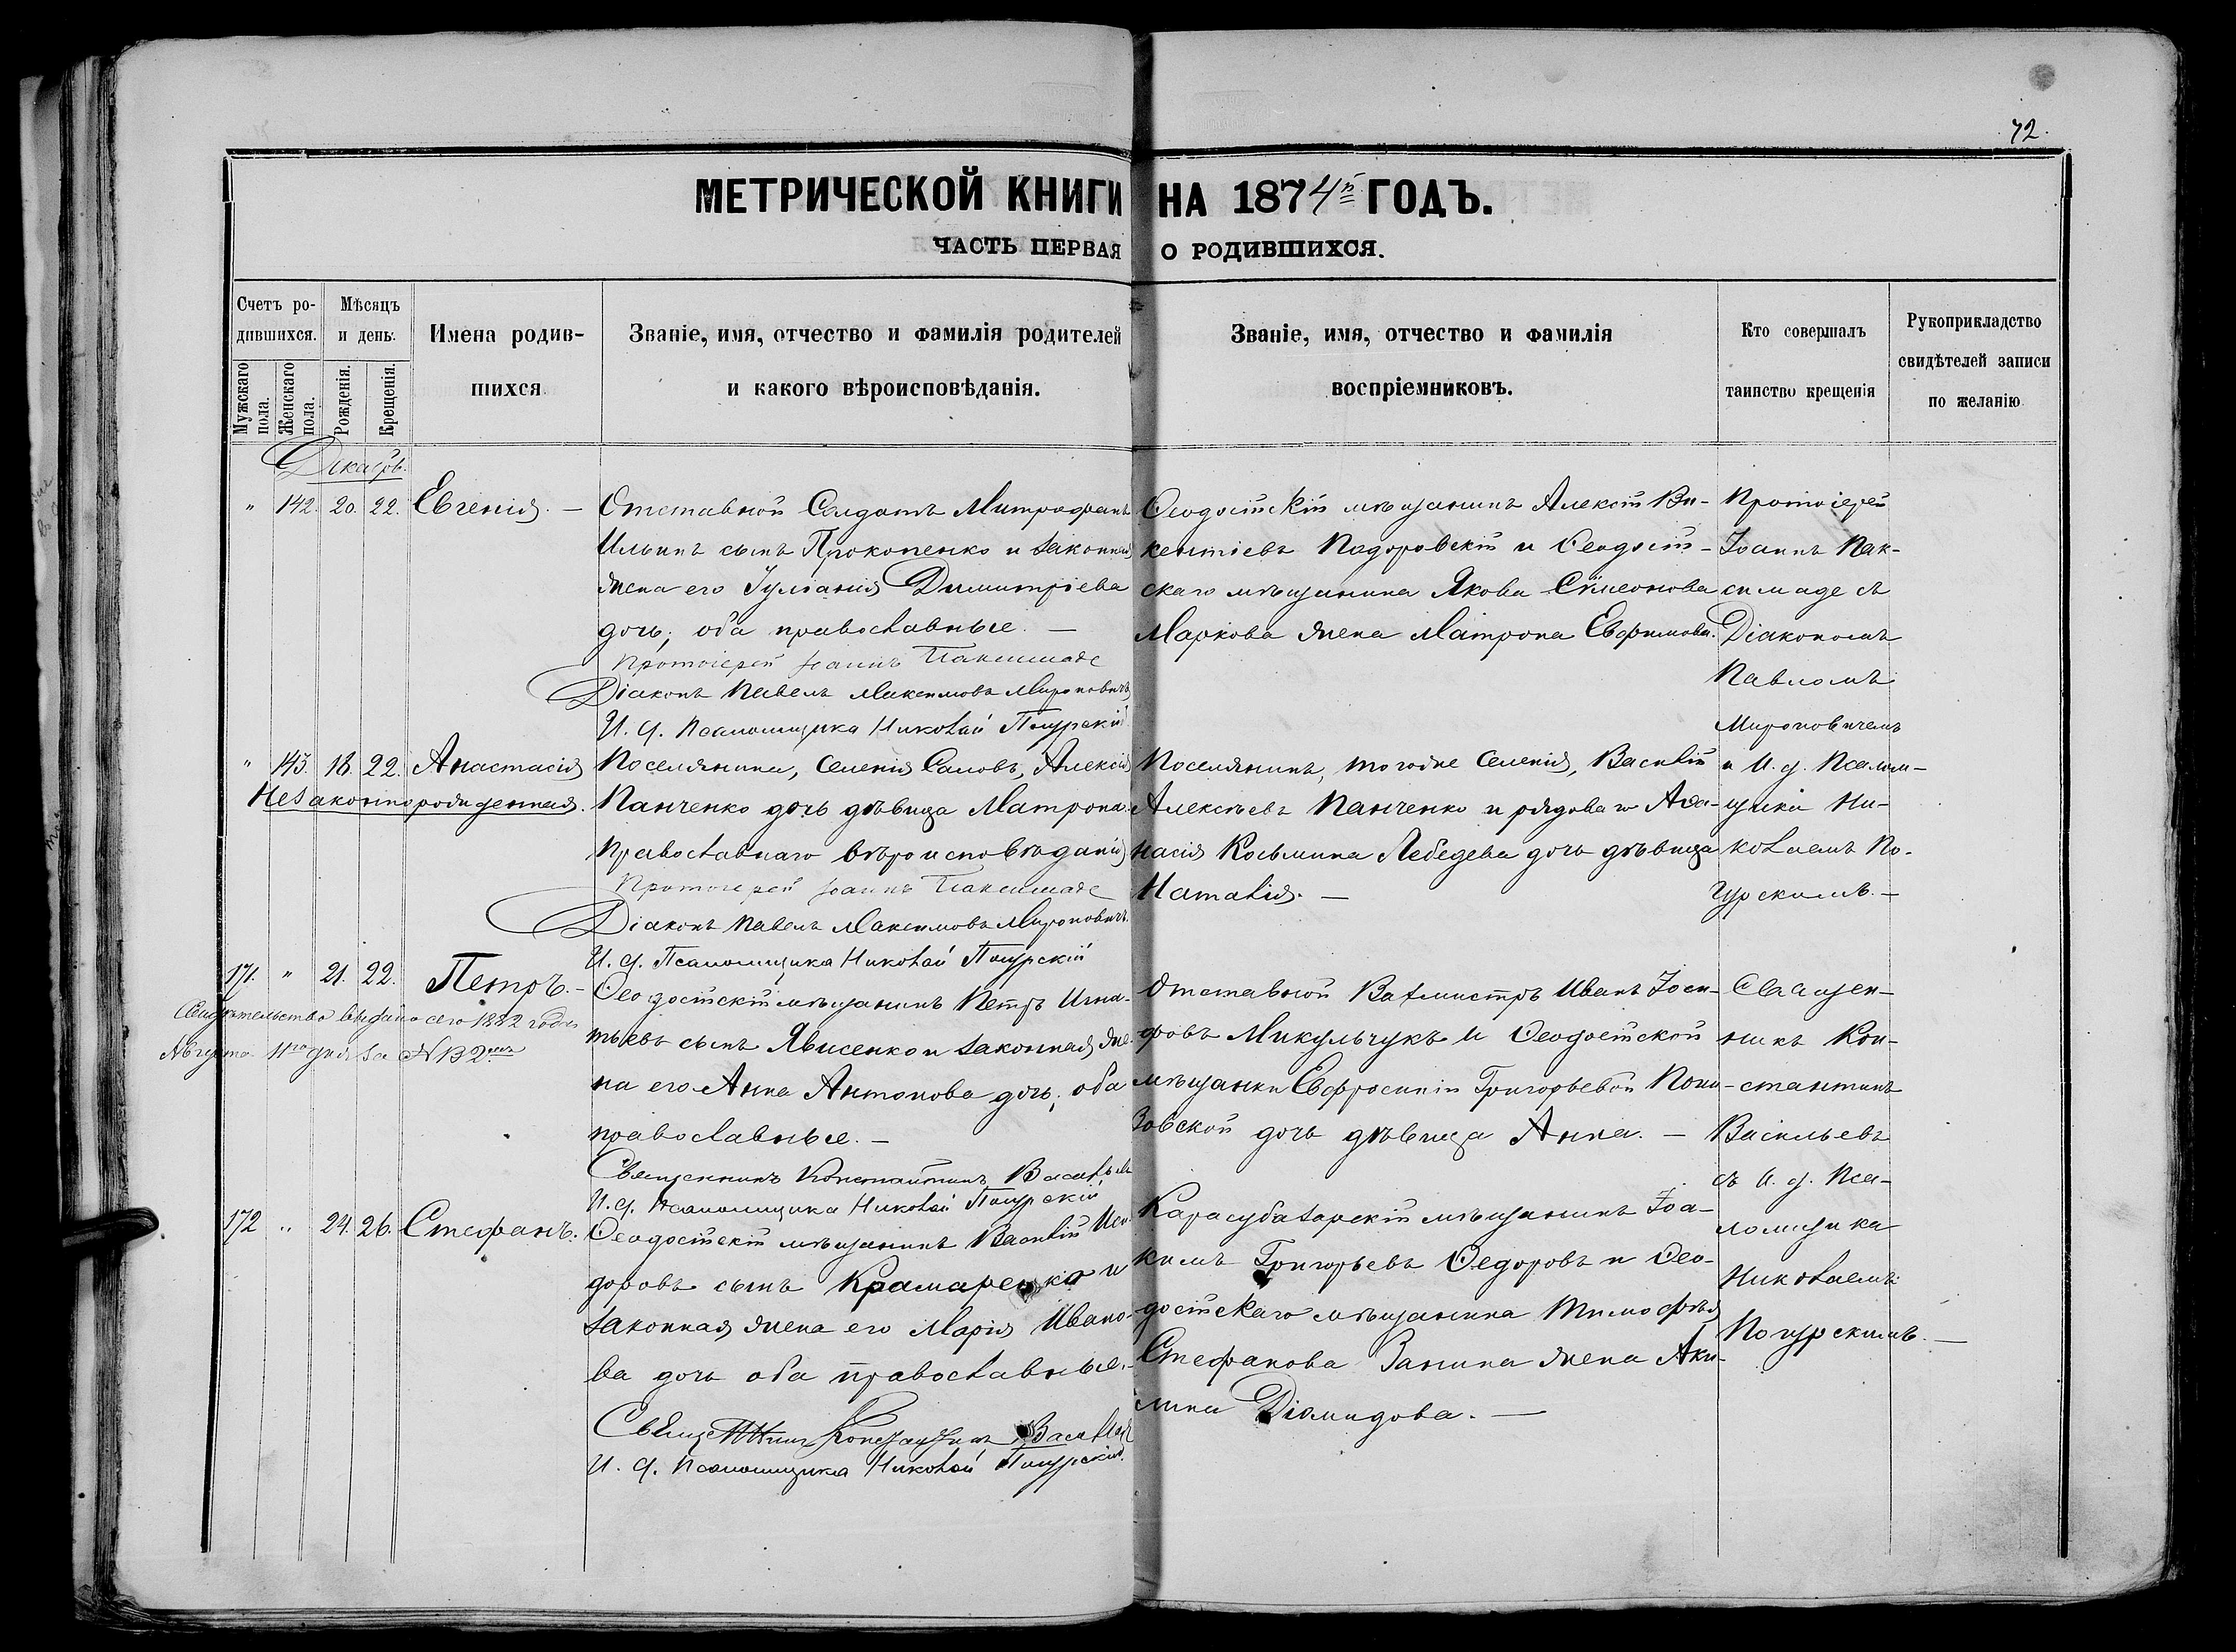 72.
МЕТРИЧЕСКОЙ КНИГИ НА 1874й ГОДЪ.
ЧАСТЬ ПЕРВАЯ О РОДИВШИХСЯ.
Счетъ ро-
дившихся.
Мужскаго пола.
Женскаго пола.
Мѣсяцъ
и день.
Рожденія.
Крещенія.
Имена родив-
шихся
Званіе, имя, отчество и фамилія родителей
и какого вѣроисповѣданія.
Званіе, имя, отчество и фамилія
воспріемниковъ.
Кто совершалъ
таинство крещенія
Рукоприкладство
свидѣтелей записи
по желанію
Декабрь.
" 142. 20. 22. Евгенія. —
Отставной Солдатъ Митрофанъ
Ильинъ сынъ Прокопенко и законная
жена его Іуліанія Димитріева
дочь; оба православные. —
Протоіерей Іоаннъ Паксимаде
Діаконъ Павелъ Максимовъ Мироновичъ
И. д. Псаломщика Николай Погурскій
Ѳеодосійскій мѣщанинъ Алексій Ви-
кентіевъ Подоровскій и Ѳеодосій-
скаго мѣщанина Якова Сѵмеонова
Маркова жена Матрона Евфимова.
Протоіерей
Іоаннъ Пак-
симаде съ
Діакономъ
Павломъ
Мироновичемъ
и И. д. Псалом-
щика Ни-
колаемъ По-
гурскимъ. —
" 143. 18. 22. Анастасія
Незаконнорожденная.
Поселянина, селенія Саловъ, Алексія
Панченко дочь дѣвица Матрона.
Православнаго вѣроисповѣданія
Протоіерей Іоаннъ Паксимаде
Діаконъ Павелъ Максимовъ Мироновичъ.
И. д. Псаломщика Николай Погурскій
Поселянинъ, тогоже селенія, Василій
Алексѣевъ Панченко и рядоваго Аѳа-
насія Козьмина Лебедева дочь дѣвица
Наталія. —
171. " 21. 22. Петръ. —
Свидѣтельство выдано сего 1882 года
Августа 11го дня за № 132мъ
Ѳеодосійскій мѣщанинъ Петръ Игна-
тьевъ сынъ Явисенко и законная же-
на его Анна Антонова дочь; оба
православные. —
Священникъ Константинъ Васильевъ
И. д. Псаломщика Николай Погурскій
Отставной Вахмистръ Иванъ Іоси-
фовъ Микульчукъ и Ѳеодосійской
мѣщанки Евфросиніи Григорьевой Пони-
зовской дочь дѣвица Анна. —
Священ-
никъ Кон-
стантинъ
Васильевъ
съ И. д. Пса-
ломщика
Николаемъ
Погурскимъ. —
172 " 24. 26. Стефанъ.
Ѳеодосійскій мѣщанинъ Василій Иси-
доровъ сынъ Крамаренко и
законная жена его Марія Ивано-
ва дочь оба православные. —
Священникъ Константинъ Васильевъ
И. д. Псаломщика Николай Погурскій.
Карасубазарскій мѣщанинъ Іоа-
кимъ Григорьевъ Ѳедоровъ и Ѳео-
досійскаго мѣщанина Тимофѣя
Стефанова Ванина жена Аки-
лина Діамидова. —